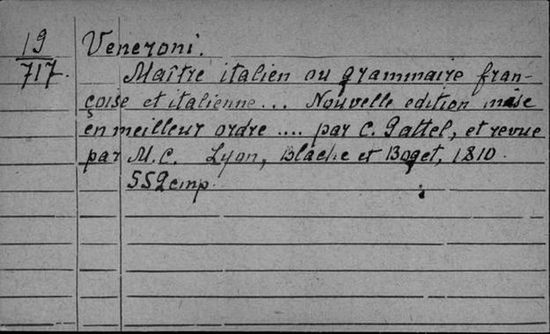 19
717.
Veneroni.
Maître italien ou grammaire fran-
çoise et italienne... Nouvelle edition mise
en meilleur ordre .... par C. Gattel, et revue
par M.C. Lyon, Blache et Boget, 1810.
552 стр.